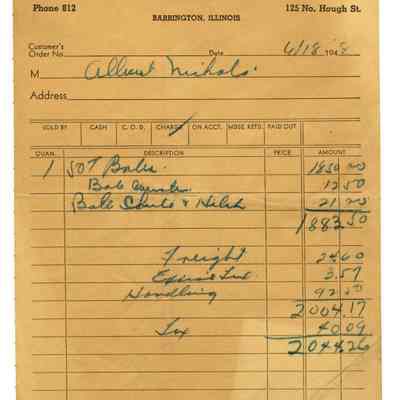 Phone 812 125 No. Hough St.
BARRINGTON, ILLINOIS
Customer's
Order No. Date 6/18 1948
M Albert Nichols
Address
SOLD BY CASH C. O. D. CHARGE ON ACCT. MDSE. RETD. PAID OUT
QUAN. DESCRIPTION PRICE AMOUNT
1 50T Baler 1850 00
Bale 12 50
Bale & Hitch 21 00
1883 50
Freight 24 60
Excise Tax 3.57
Handling 92 50
2004.17
Tax 40.09
2044.26